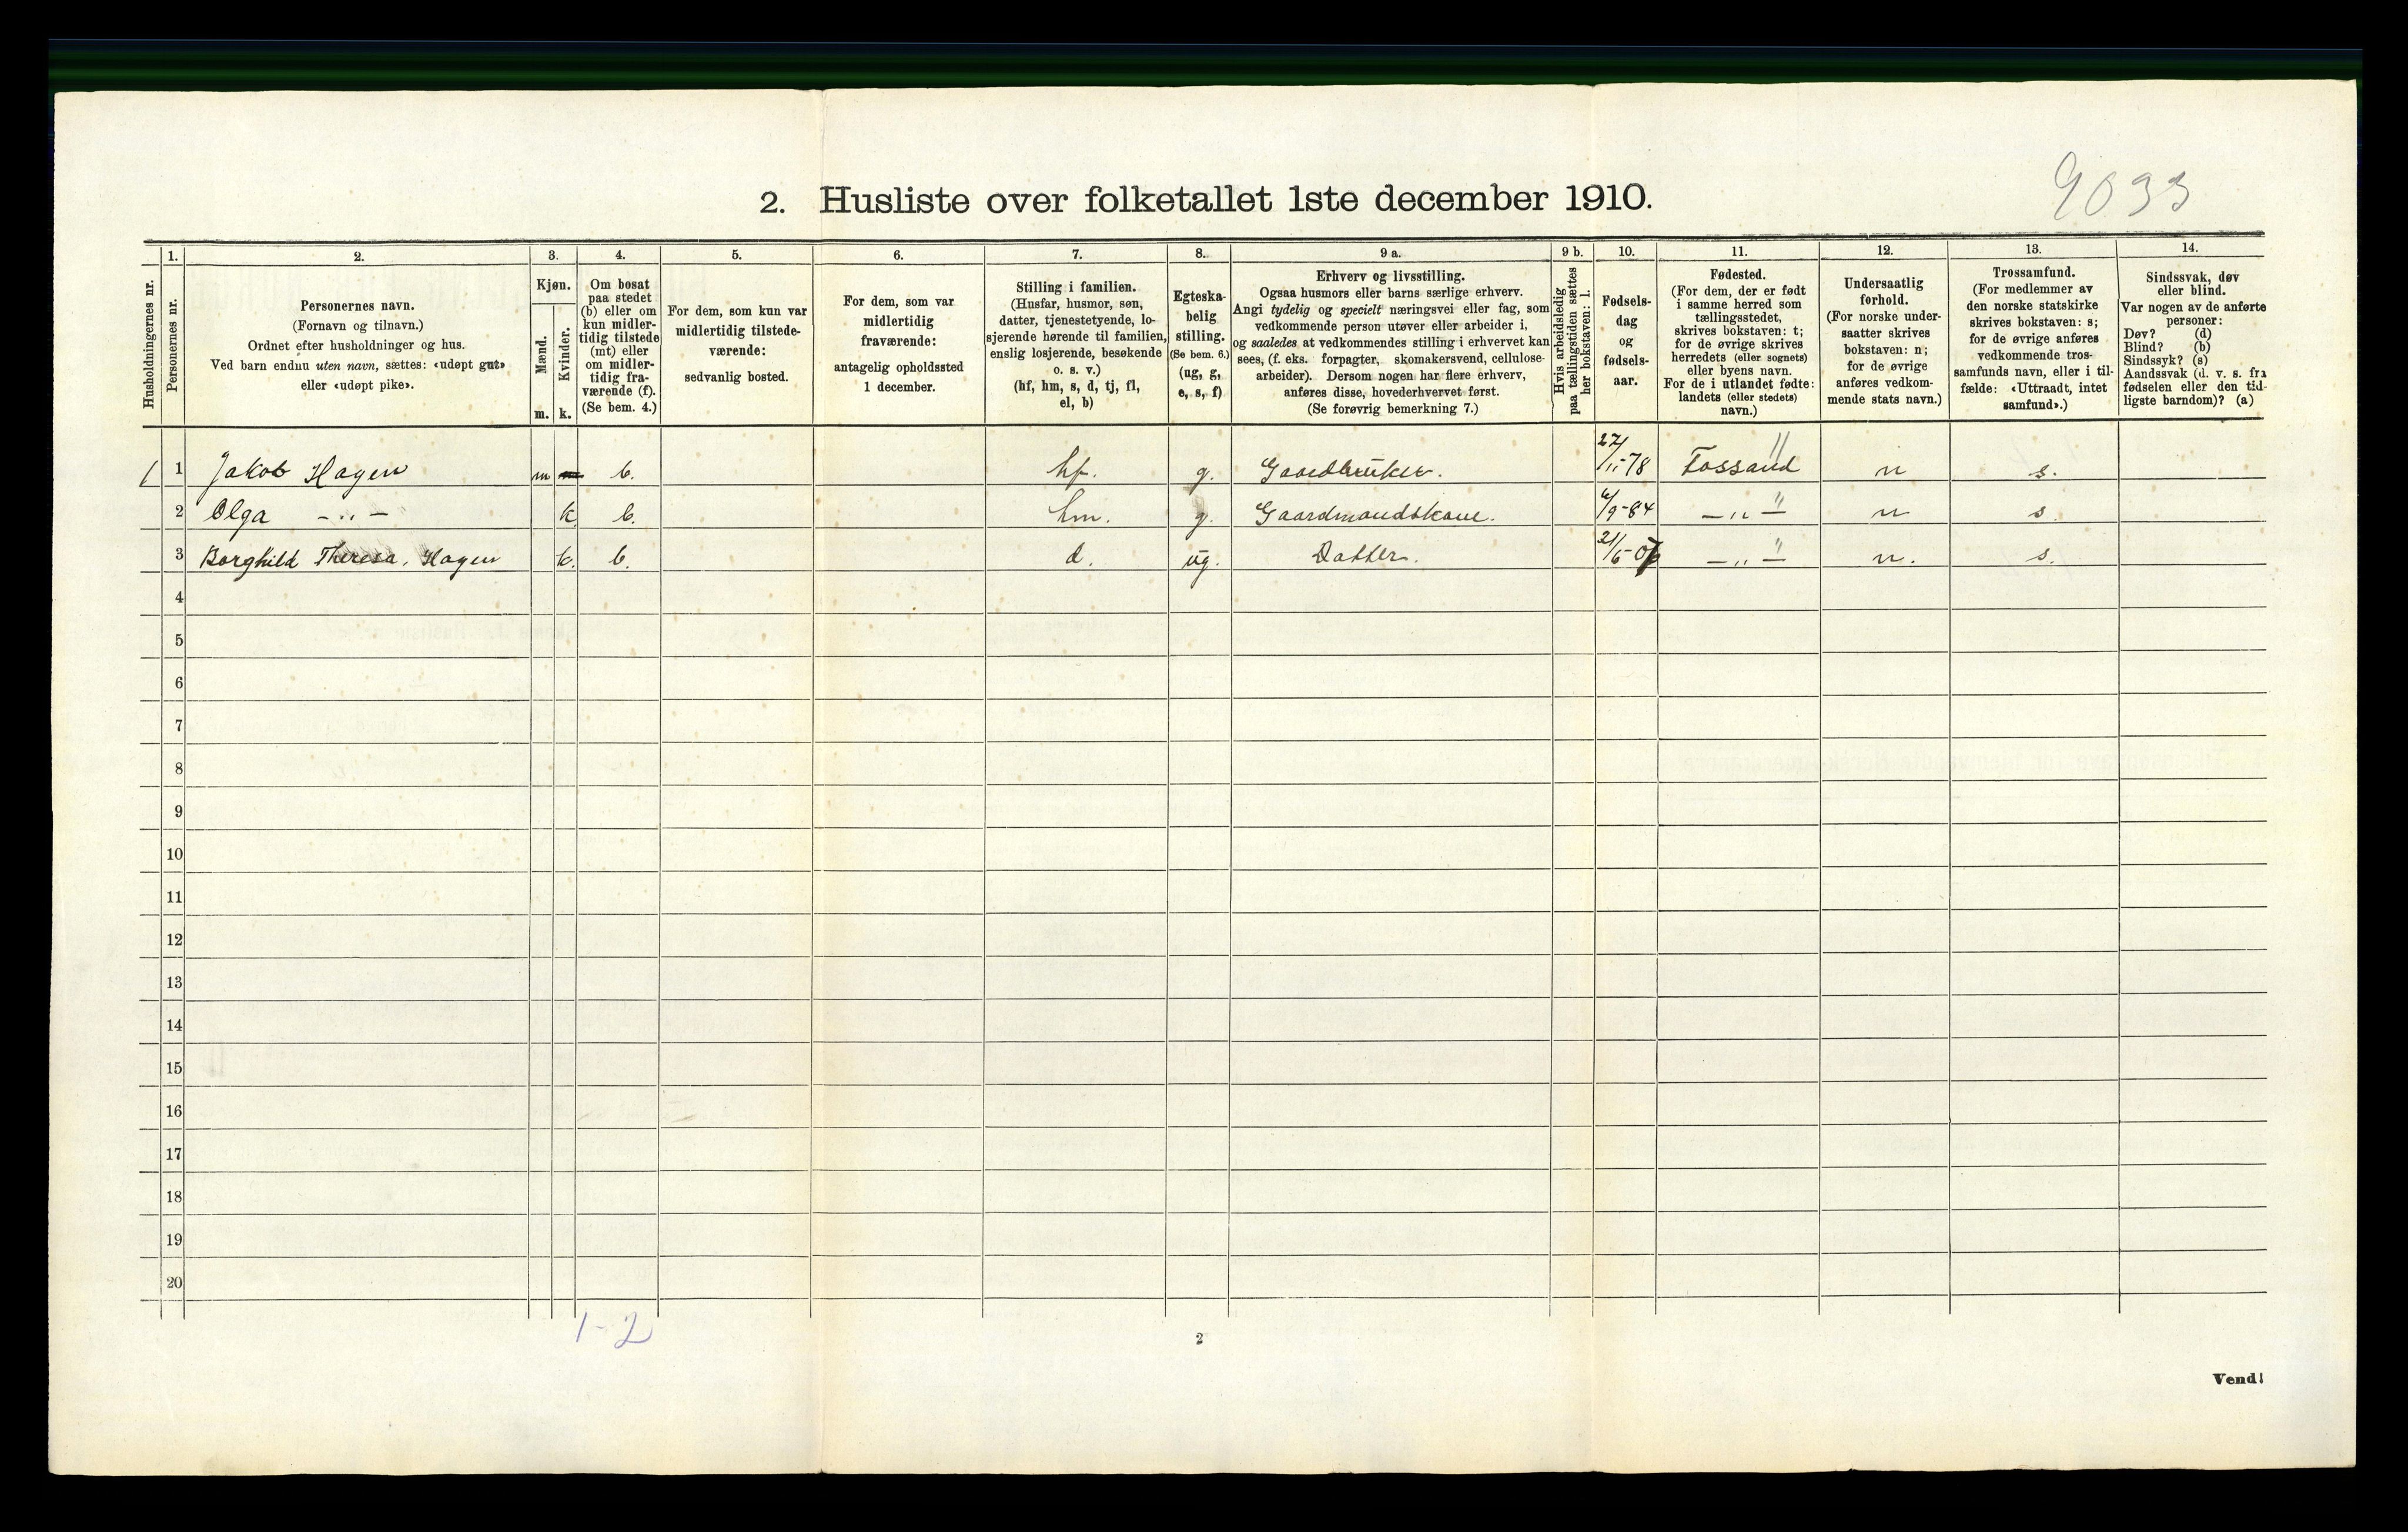 9033
2. Husliste over folketallet 1ste december 1910.
Husholdningernes nr.
1.
Personernes nr.
2.
Personernes navn.
(Fornavn og tilnavn.)
Ordnet efter husholdninger og hus.
Ved barn endnu uten navn, sættes: «udøpt gut»
eller «udøpt pike».
3.
Kjøn.
Mænd.
Kvinder.
m. k.
4.
Om bosat
paa stedet
(b) eller om
kun midler-
tidig tilstede
(mt) eller
om midler-
tidig fra-
værende (f).
(Se bem. 4.)
5.
For dem, som kun var
midlertidig tilstede-
værende:
sedvanlig bosted.
6.
For dem, som var
midlertidig
fraværende:
antagelig opholdssted
1 december.
7.
Stilling i familien.
(Husfar, husmor, søn,
datter, tjenestetyende, lo-
sjerende hørende til familien,
enslig losjerende, besøkende
o. s. v.)
(hf, hm, s, d, tj, fl,
el, b)
8.
Egteska-
belig
stilling.
(Se bem. 6.)
(ug, g,
e, s, f)
9 a.
Erhverv og livsstilling.
Ogsaa husmors eller barns særlige erhverv.
Angi tydelig og specielt næringsvei eller fag, som
vedkommende person utøver eller arbeider i,
og saaledes at vedkommendes stilling i erhvervet kan
sees, (f. eks. forpagter, skomakersvend, cellulose-
arbeider). Dersom nogen har flere erhverv,
anføres disse, hovederhvervet først.
(Se forøvrig bemerkning 7.)
9 b.
Hvis arbeidsledig
paa tællingstiden sættes
her bokstaven: l.
10.
Fødsels-
dag
og
fødsels-
aar.
11.
Fødested.
(For dem, der er født
i samme herred som
tællingsstedet,
skrives bokstaven: t;
for de øvrige skrives
herredets (eller sognets)
eller byens navn.
For de i utlandet fødte:
landets (eller stedets)
navn.)
12.
Undersaatlig
forhold.
(For norske under-
saatter skrives
bokstaven: n;
for de øvrige
anføres vedkom-
mende stats navn.)
13.
Trossamfund.
(For medlemmer av
den norske statskirke
skrives bokstaven: s;
for de øvrige anføres
vedkommende tros-
samfunds navn, eller i til-
fælde: «Uttraadt, intet
samfund».)
14.
Sindssvak, døv
eller blind.
Var nogen av de anførte
personer:
Døv? (d)
Blind? (b)
Sindssyk? (s)
Aandssvak (d. v. s. fra
fødselen eller den tid-
ligste barndom)? (a)
1 1 Jakob Hagen m b. hf. g. Gaardbruker. 27/11-78 Fossand " n s.
2 Olga -"- k b. hm. g. Gaardmandskone. /9-84 -"- " n s.
3 Borghild Theresa. Hagen k. b. d. ug. Datter. 21/6-07 -"- " n. s.
4
5
6
7
8
9
10
11
12
13
14
15
16
17
18
19
20
1-2
2
Vend!